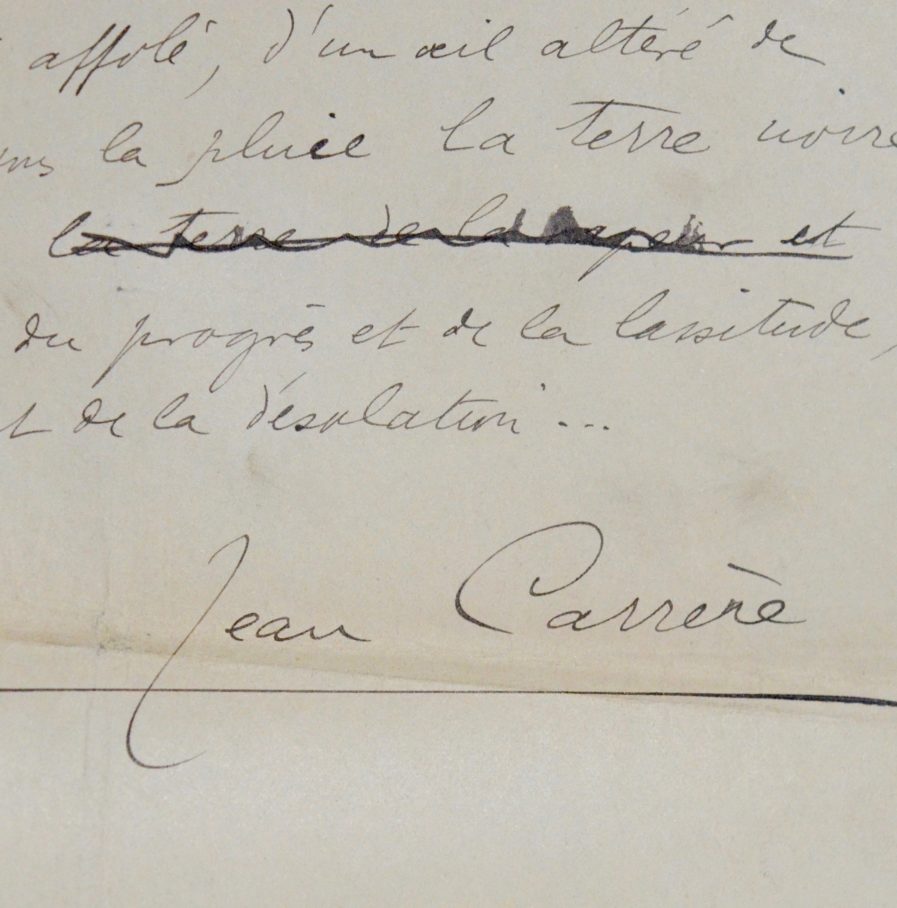 affolé, d'un œil altéré de
la pluie la terre noire
la terre de la vapeur et
du progrès et de la lassitude,
et de la désolation...
Jean Carrère